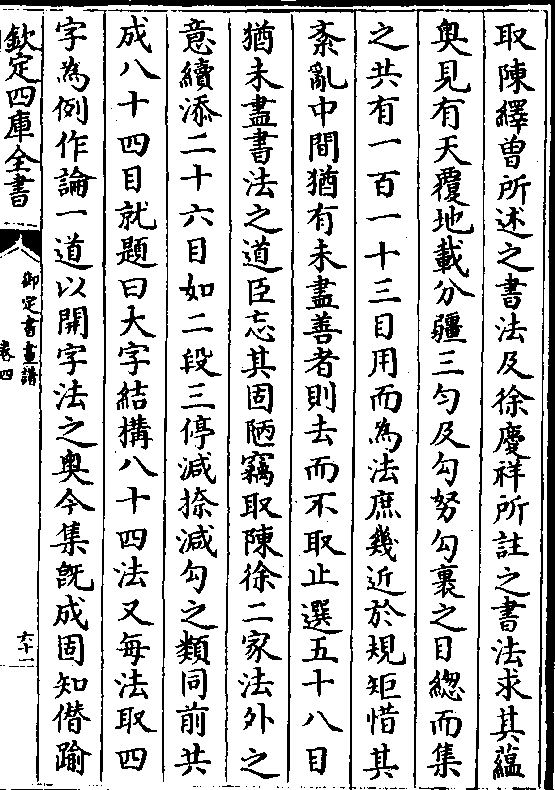 取陳繹曾所述之書法及徐慶祥所註之書法求其蘊
奥見有天覆地載分疆三勻及勾努勾裹之目緫而集
之共有一百一十三目用而為法庶幾近於規矩惜其
紊亂中間猶有未盡善者則去而不取止選五十八目
猶未盡書法之道臣忘其固陋竊取陳徐二家法外之
意續添二十六目如二段三停減捺減勾之類同前共
成八十四目就題曰大字結構八十四法又每法取四
字為例作論一道以開字法之奥今集旣成固知僭踰
欽定四庫全書
御定書畫譜
卷四
六十一